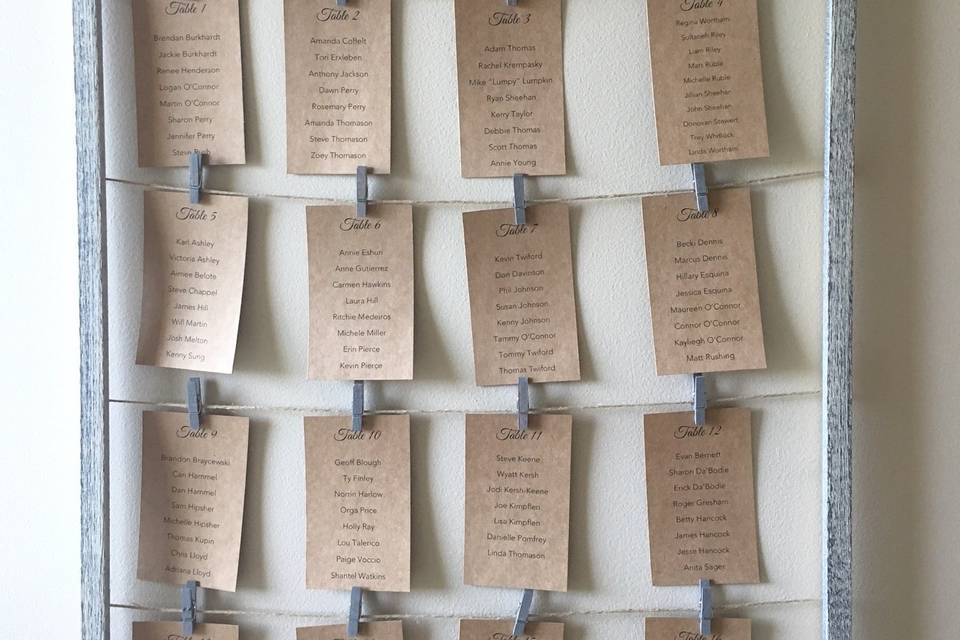 Table 1
Brendan Burkhardt
Jackie Burkhardt
Renee Henderson
Logan O'Connor
Martin O'Connor
Sharon Perry
Jennifer Perry
Steve Bush
Table 2
Amanda Coffelt
Tori Erxleben
Anthony Jackson
Dawn Perry
Rosemary Perry
Amanda Thomason
Steve Thomason
Zoey Thomason
Table 3
Adam Thomas
Rachel Krempasky
Mike "Lumpy" Lumpkin
Ryan Sheehan
Kerry Taylor
Debbie Thomas
Scott Thomas
Annie Young
Table 4
Regina Wortham
Sultaneh Riley
Liam Riley
Mark Ruble
Michelle Ruble
Jillian Sheehan
John Sheehan
Donovan Stewart
Trey Whitback
Landa Wortham
Table 5
Karl Ashley
Victoria Ashley
Aimee Belote
Steve Chappel
James Hill
Will Martin
Josh Melton
Kenny Sung
Table 6
Annie Eshun
Anne Gutierrez
Carmen Hawkins
Laura Hill
Ritchie Medeiros
Michele Miller
Erin Pierce
Kevin Pierce
Table 7
Kevin Twiford
Don Davinson
Phil Johnson
Susan Johnson
Kenny Johnson
Tammy O'Connor
Tommy Twiford
Thomas Twiford
Table 8
Becki Dennis
Marcus Dennis
Hillary Esquina
Jessica Esquina
Maureen O'Connor
Connor O'Connor
Kayliegh O'Connor
Matt Rushing
Table 9
Brandon Braycewski
Can Hammel
Dan Hammel
Sam Hipsher
Michelle Hipsher
Thomas Kupin
Chris Lloyd
Adriana Lloyd
Table 10
Geoff Blough
Ty Finley
Norrin Harlow
Orga Price
Holly Ray
Lou Talerico
Paige Voccio
Shantel Watkins
Table 11
Steve Keene
Wyatt Kersh
Jodi Kersh-Keene
Joe Kimpflen
Lisa Kimpflen
Danielle Pomfrey
Linda Thomason
Table 12
Evan Bernett
Sharon Da'Bodie
Erick Da'Bodie
Roger Gresham
Betty Hancock
James Hancock
Jesse Hancock
Anita Sager